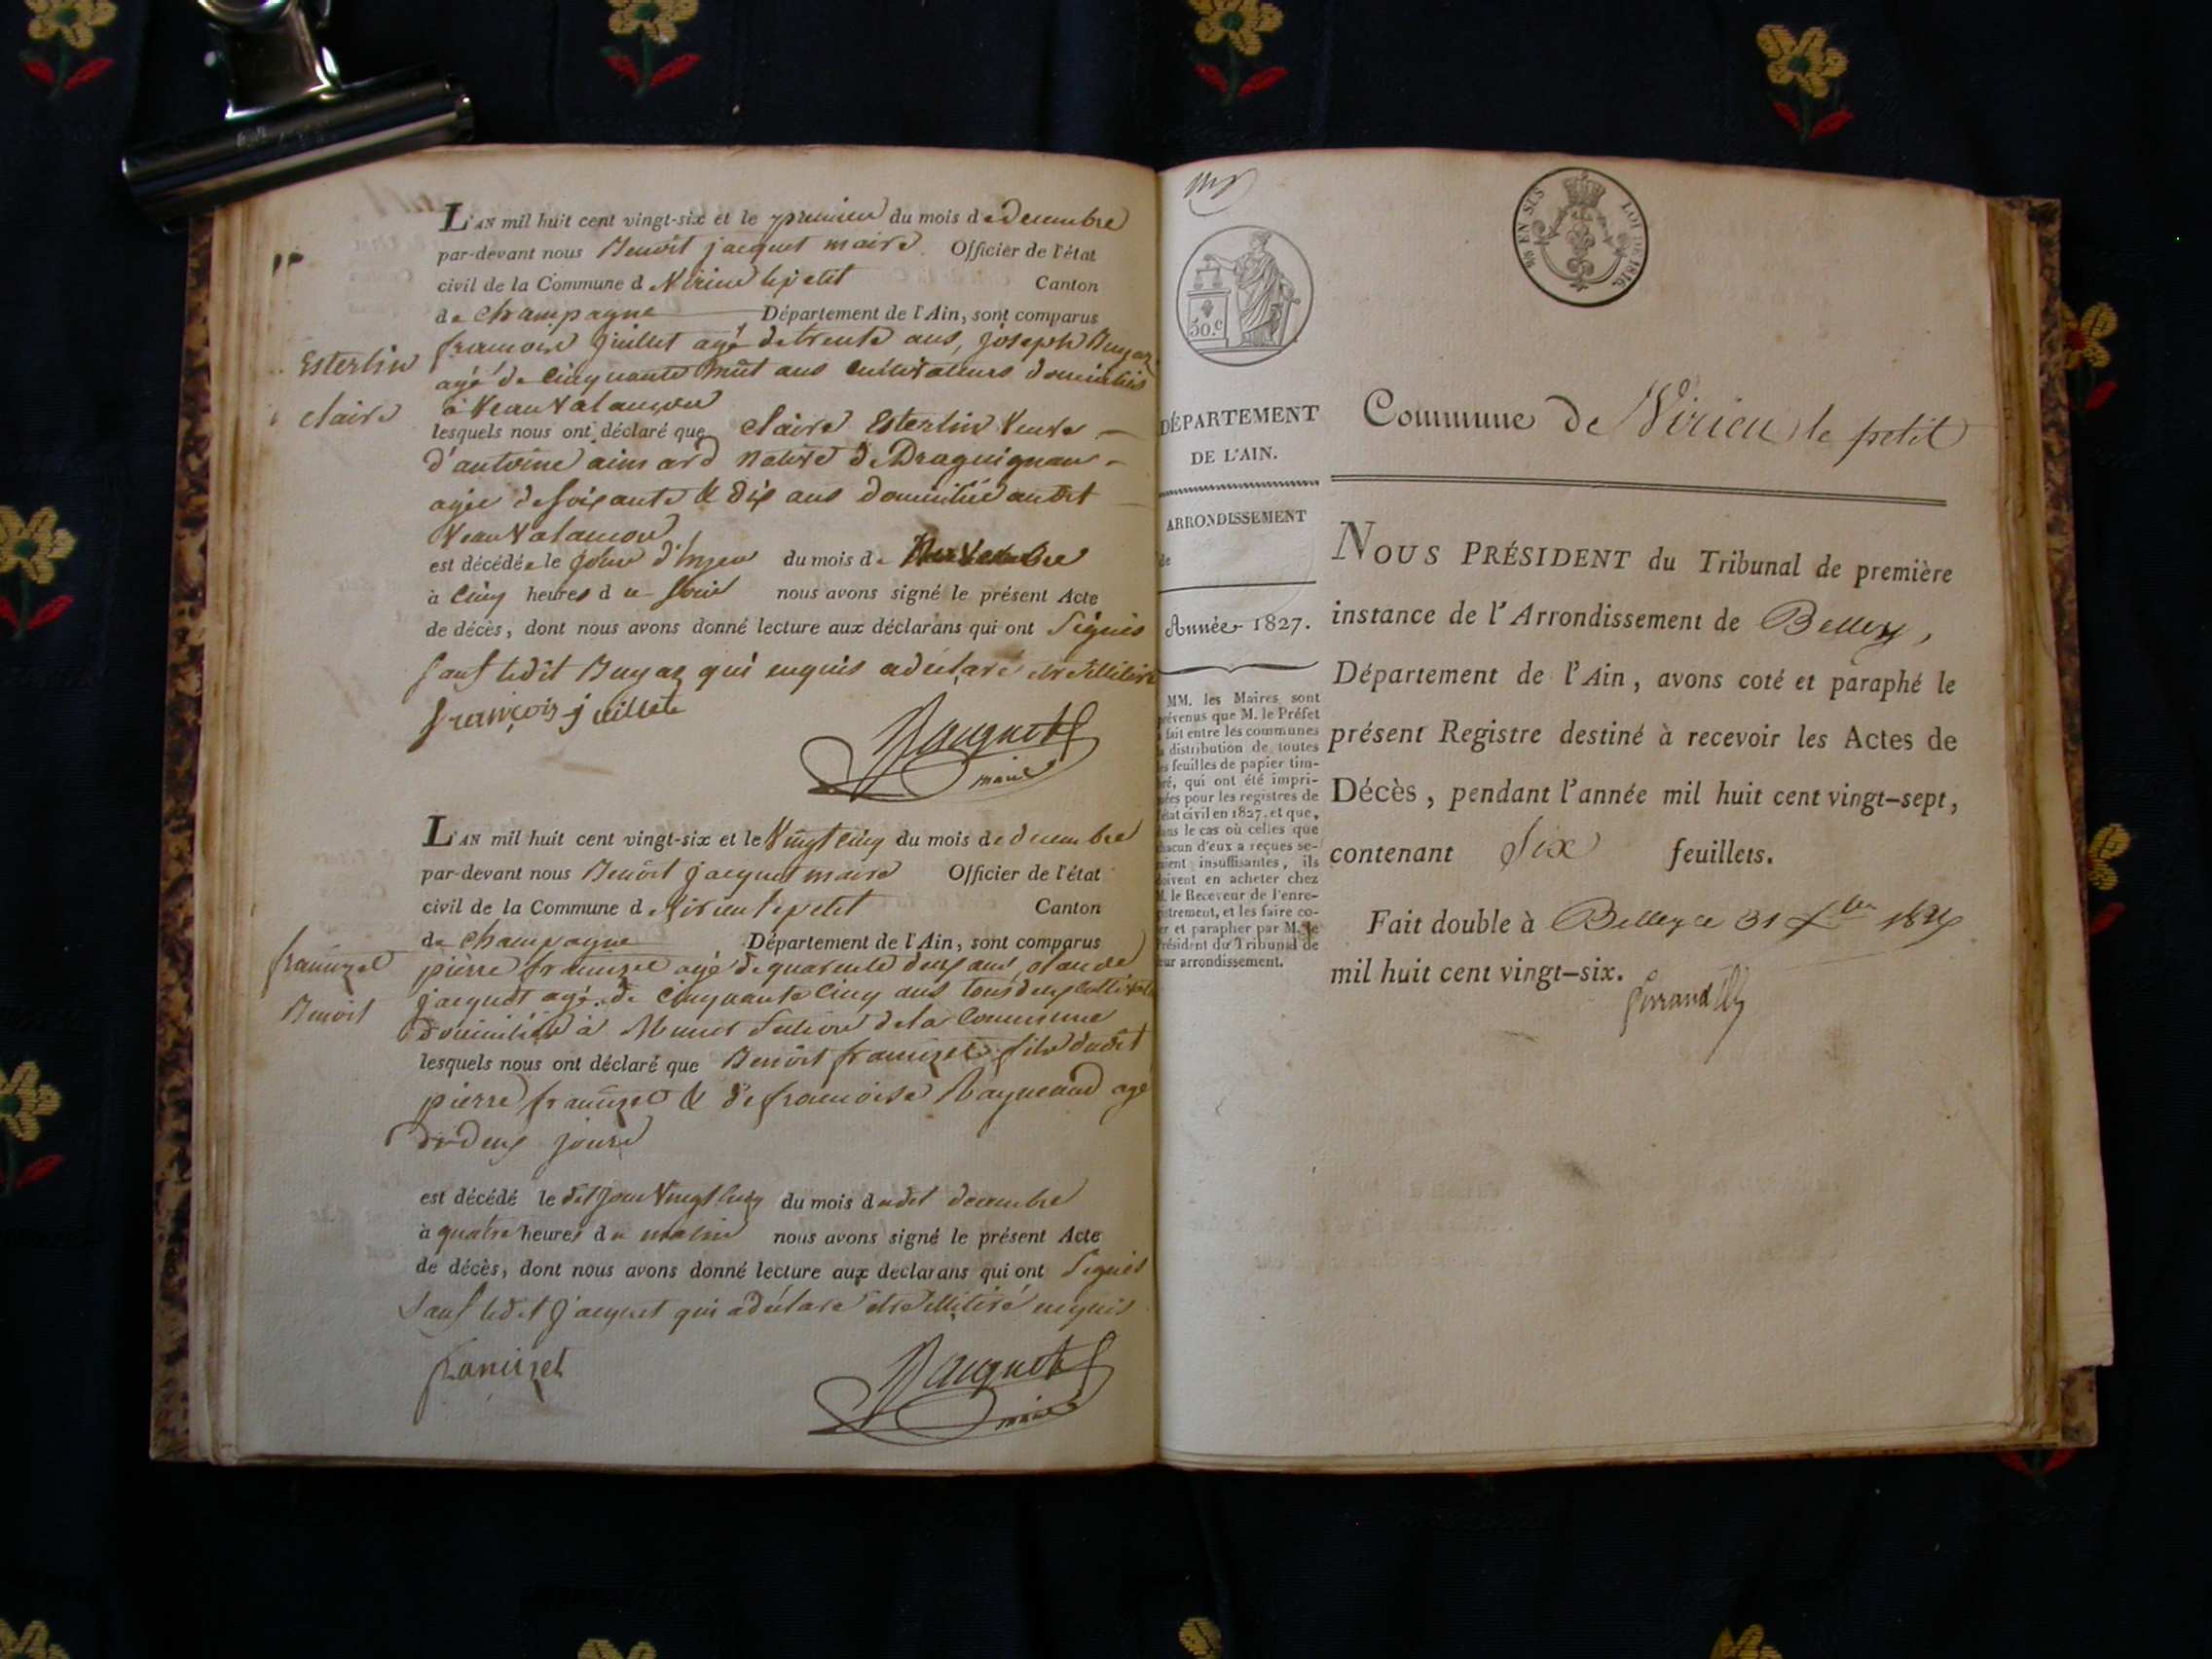 Esterlin
Claire
L'AN mil huit cent vingt-six et le premier du mois de decembre
par-devant nous Benoit jacquet maire Officier de l'état
civil de la Commune d Virieu le petit Canton
de Champagne Département de l'Ain, sont comparus
francois juillet agé de trente ans, joseph Bugaz
agé de Cinquante huit ans Cultivateurs domiciliés
à Vauxvalançon
lesquels nous ont déclaré que Claire Esterlin Veuve
d'antoine aimard native de Draguignan
agée de soixante & dix ans domiciliée audit
est décédée le jour d'hyer du mois de Novembre
à Cinq heures du soir nous avons signé le présent Acte
de décès, dont nous avons donné lecture aux déclarans qui ont Signés
sauf ledit Bugaz qui enquis a déclaré etre illitiré
françois juillet
Jacquet
maire
franc̃izet
Benoit
L'AN mil huit cent vingt-six et le Vingt cinq du mois de decembre
par-devant nous Benoit jacquet maire Officier de l'état
civil de la Commune d Virieu le petit Canton
de Champagne Département de l'Ain, sont comparus
pierre agé de quarente deux ans, claude
jacquet agé de Cinquante Cinq ans tous deux
domiciliés à Munet Section de la Commune
lesquels nous ont déclaré que Benoit fils dudit
pierre & de francoise agé
de deux jours
est décédé le dit jour Vingt cinq du mois dudit decembre
à quatre heures du matin nous avons signé le présent Acte
de décès, dont nous avons donné lecture aux declarans qui ont Signés
Sauf ledit jacquet qui a déclaré etre illitiré enquis
Jacquet
maire
EN SUS LOI DE 1816
50.c
DÉPARTEMENT
DE L'AIN.
ARRONDISSEMENT
de
Année 1827.
MM. les Maires sont
prévenus que M. le Préfet
a fait entre les communes
la distribution de toutes
les feuilles de papier tim-
bré, qui ont été impri-
mées pour les registres de
l'état civil en 1827, et que,
dans le cas où celles que
chacun d'eux a reçues se-
raient insuffisantes, ils
doivent en acheter chez
M. le Receveur de l'enre-
gistrement, et les faire co-
ter et parapher par M. le
Président du Tribunal de
leur arrondissement.
Commune de Virieu le petit
NOUS PRÉSIDENT du Tribunal de première
instance de l'Arrondissement de Belley,
Département de l'Ain, avons coté et paraphé le
présent Registre destiné à recevoir les Actes de
Décès, pendant l'année mil huit cent vingt-sept,
contenant Six feuillets.
Fait double à Belley ce 31 Xbre
mil huit cent vingt-six.